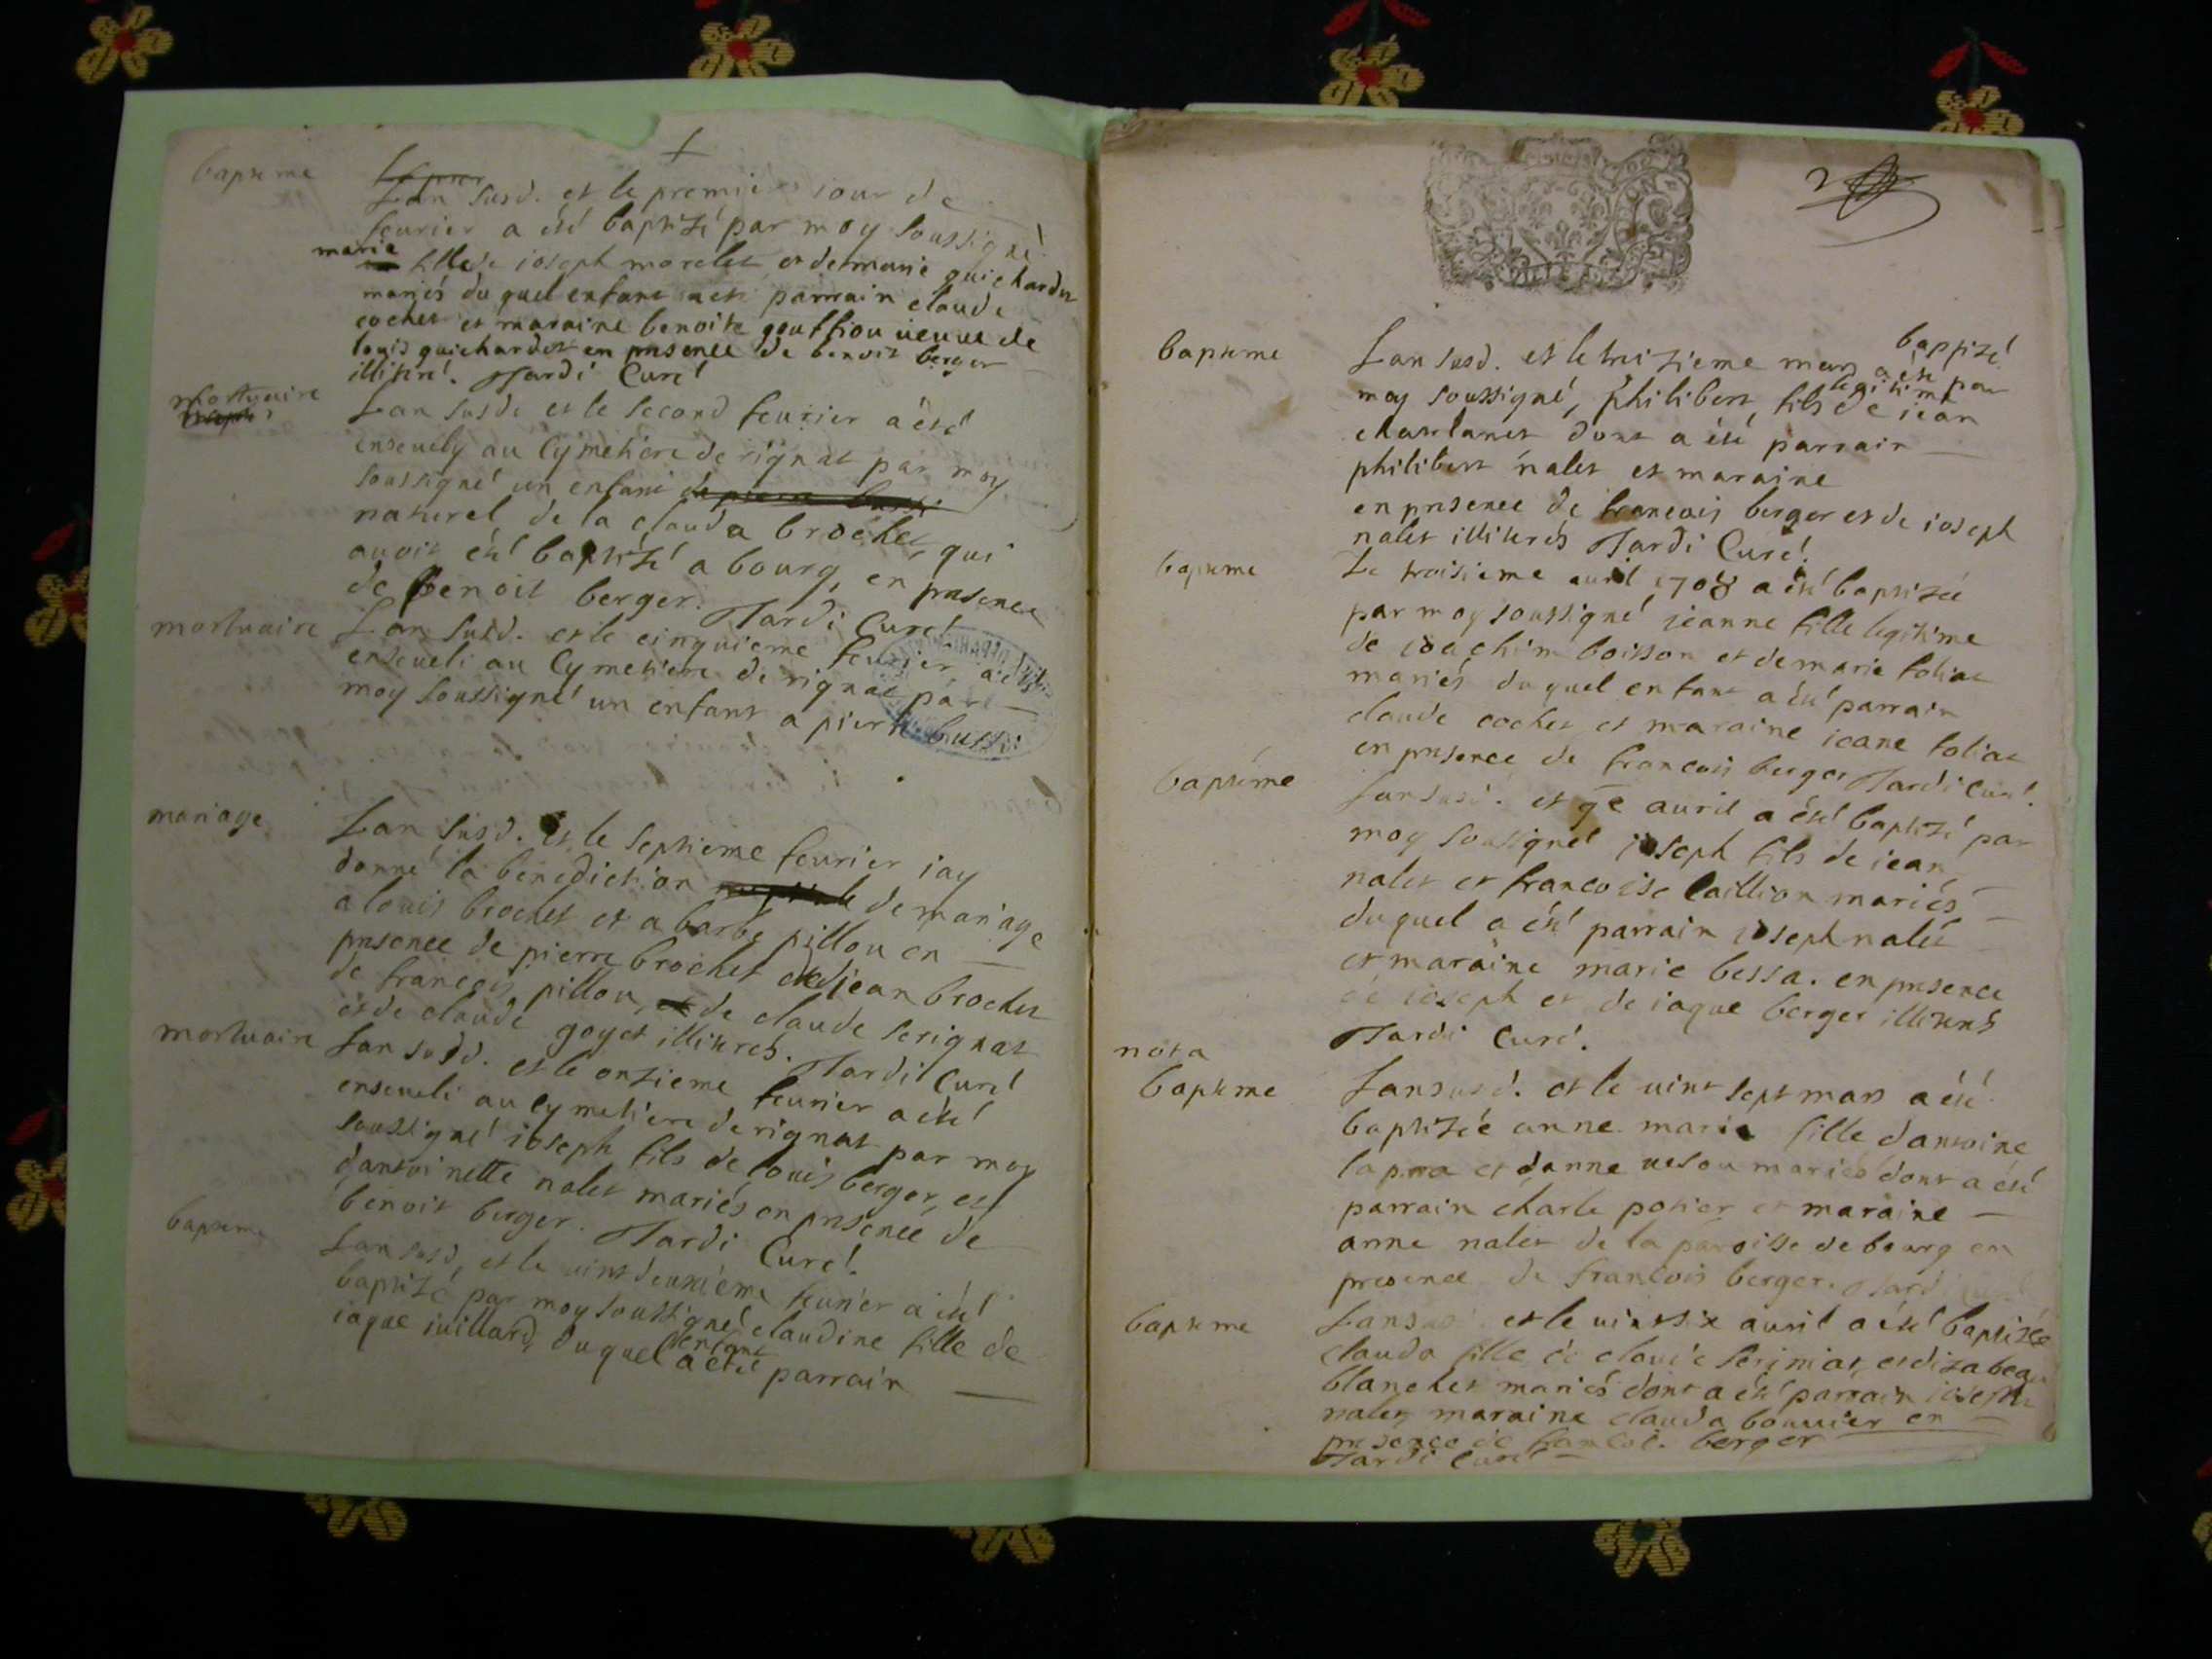 +
bapteme
Lan susd. et le premier iour de
feurier a été baptizé par moy soussigné
marie fille de ioseph morelet et de marie guichardet
mariés du quel enfant a été parrain claude
cochet et maraine benoite gouttiou ueuue de
louis guichardet en presence de benoit berger
illitéré. Tardi Curé
mortuaire
Lan susd. et le second feurier a été
enseuely au Cymetiere de rignat par moy
soussigné un enfant
naturel de la clauda brochet, qui
auoit été baptizé a bourg, en presence
de benoit berger. Tardi Curé
mortuaire
Lan susd. et le cinquieme feurier a été
enseueli au Cymetiere de rignat par
moy soussigné un enfant a pierre bussi
mariage
Lan susd. et le septieme feurier iay
donné la benediction de mariage
a louis brochet et a barbe pillou en
presence de pierre brochet et de jean brochet
de francois pillou, de claude serignat
et de claude goyet illiterés. Tardi Curé
mortuaire
Lan susd. et le onzieme feurier a été
enseueli au Cymetiere de rignat par moy
soussigné ioseph fils de louis berger, et
dantoinette nalet mariés en presence de
benoit berger. Tardi Curé.
bapteme
Lan susd, et le uint deuxieme feurier a été
baptizé par moy soussigné claudine fille de
iaque iuillard, duquel enfant a été parrain
2
bapteme
Lan susd. et le treizieme mars a été baptizé par
moy soussigné, philibert, fils legitime de iean
chastanet dont a été parrain
philibert nalet et maraine
en presence de francois berger et de ioseph
nalet illiterés Tardi Curé.
bapteme
Le troisieme auril 1708 a été baptizée
par moy soussigné jeanne fille legitime
de ioachim boisson et de marie foliat
mariés duquel enfant a été parrain
claude cochet et maraine ieane foliat
en presence de francois berger Tardi Curé.
baptéme
Lan susd. et 9e auril a été baptizé par
moy soussigné ioseph fils de iean
nalet et francoise Caillion mariés
duquel a été parrain ioseph nalet
et maraine marie bessa. en presence
de ioseph et de iaque berger illiterés
Tardi Curé.
nota
bapteme
Lan susd. et le uint sept mars a été
baptizée anne marie fille dantoine
lapra et danne uesou mariés dont a été
parrain charle potier et maraine
anne nalet de la paroisse de bourg en
presence de francois berger. Tardi
bapteme
Lan susd. et le uint six auril a été baptizée
clauda fille de claude seriniat, et dizabeau
blanchet mariés dont a été parrain ioseph
nalet maraine clauda bouuier en
presence de francois berger
Tardi Curé